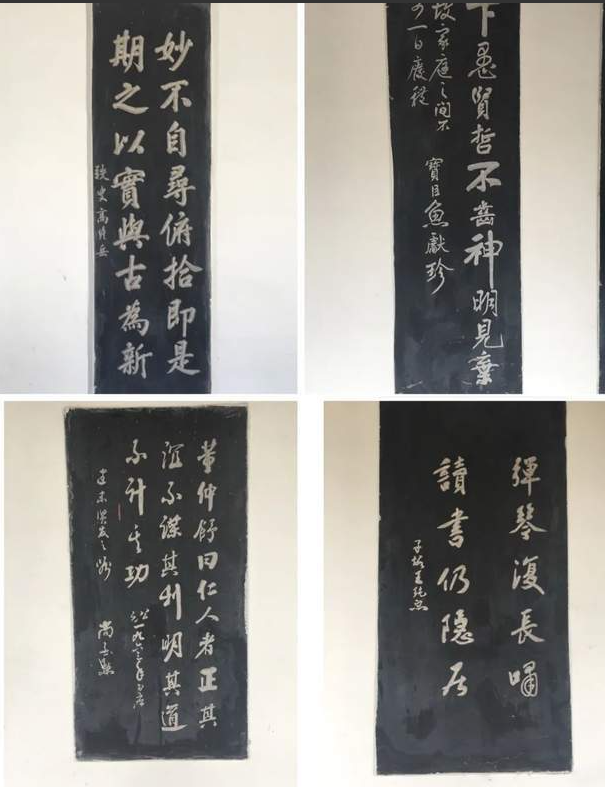 妙不自尋俯拾即是
期之以實與古為新
下愚賢哲不齒神明見棄
故家庭之間不
可一日廢
寶臣魚獻珍
董仲舒曰仁人者正其
誼不謀其利明其道
不計其功
尚玉
彈琴復長嘯
讀書仍隱居
子